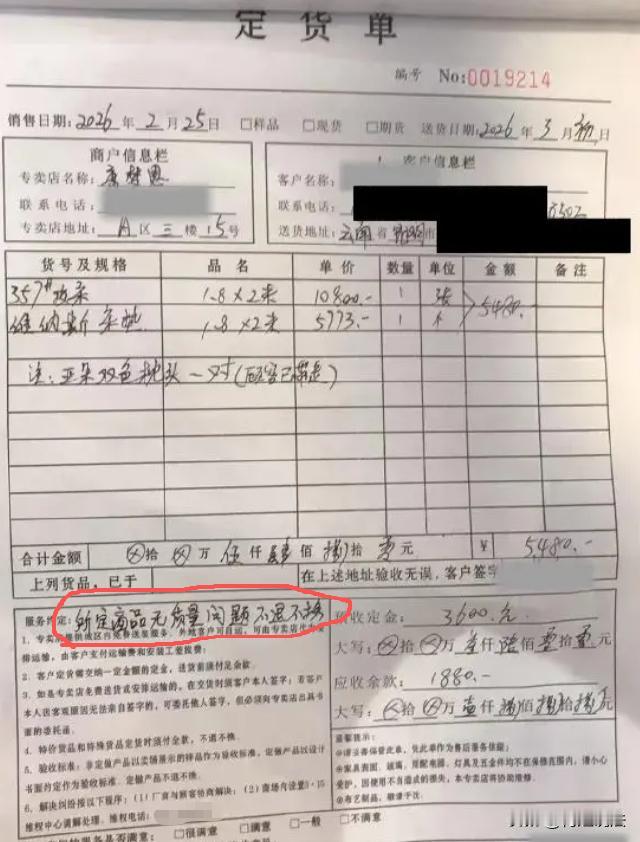 定货单
编号 No:0019214
销售日期:2026年2月25日 □样品 □现货 □期货 送货日期:2026年3月初日
商户信息栏
专卖店名称:康梦恩
联系电话:
专卖店地址:A区三楼15号
客户信息栏
客户名称:
联系电话: 6502
送货地址:云南省 市
货号及规格 品名 单价 数量 单位 金额 备注
357# 1.8×2米 10800.- 1 张 5480.-
维纳斯床垫 1.8×2米 5773.- 1 个
注:亚朵双色枕头一对(顾客已带走)
合计金额 ⊗拾⊗万伍仟肆佰捌拾零元 ¥ 5480.-
上列货品,已于 在上述地址验收无误,客户签字
服务约定:所定商品无质量问题不退不换
1、专卖店提供城区内免费送装服务,外地客户可自运,可由专卖店代为安
排运输,由客户支付运输费和安装工差旅费;
2、客户定货需交纳一定金额的定金,送货前须付足余款。
3、如是专卖店免费送货或安排运输的,在交付时须客户本人签字;若客户
本人因客观原因无法亲自签字的,可委托他人签字,但必须向专卖店出具书
面的委托函。
4、特价货品和特殊货品定货时须付全款,不退不换。
5、验收标准:非定做产品以卖场展示的样品作为验收标准,定做产品以设计
书面约定作为验收标准,定做产品不退不换。
6、解决纠纷按以下程序:(1)厂商与顾客协商解决;(2)商场内设置3·15
维权中心调解处理。维权电话:
预收定金:3600.元
大写:⊗拾⊗万叁仟陆佰零拾零元
应收余款:1880.-
大写:⊗拾⊗万壹仟捌佰捌拾零元
温馨提示:
※请妥善保管此单,凭此单作为售后服务依据;
※家具表面、玻璃、用配电器、灯具及五金件均不在保修范围内,请小心
爱护,因使用不当造成的损失,本专卖店将协助维修。
※布艺制品,破渍干洗。
的服务是否满意: □很满意 □满意 □一般 □不满意